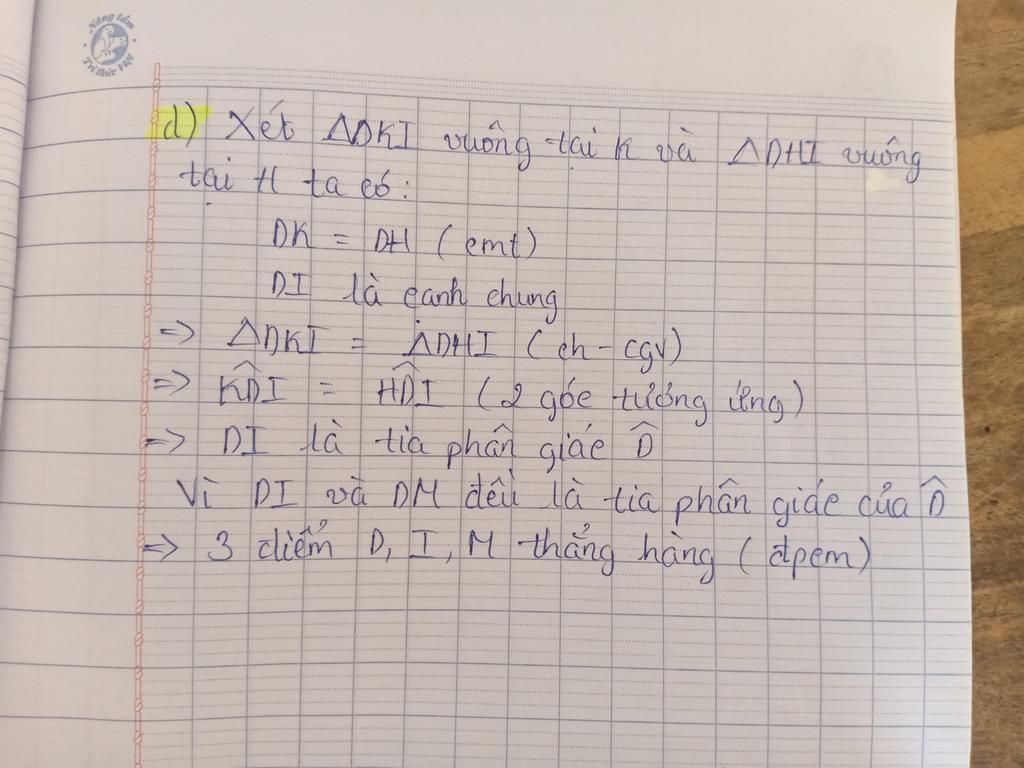 Nâng tầm
Tri thức Việt
d) Xét ΔDKI vuông tại K và ΔDHI vuông
tại H ta có:
DK = DH (cmt)
DI là cạnh chung
=> ΔDKI = ΔDHI (ch - cgv)
=> KD̂I = HD̂I (2 góc tương ứng)
=> DI là tia phân giác D̂
Vì DI và DM đều là tia phân giác của D̂
=> 3 điểm D, I, M thẳng hàng (đpcm)